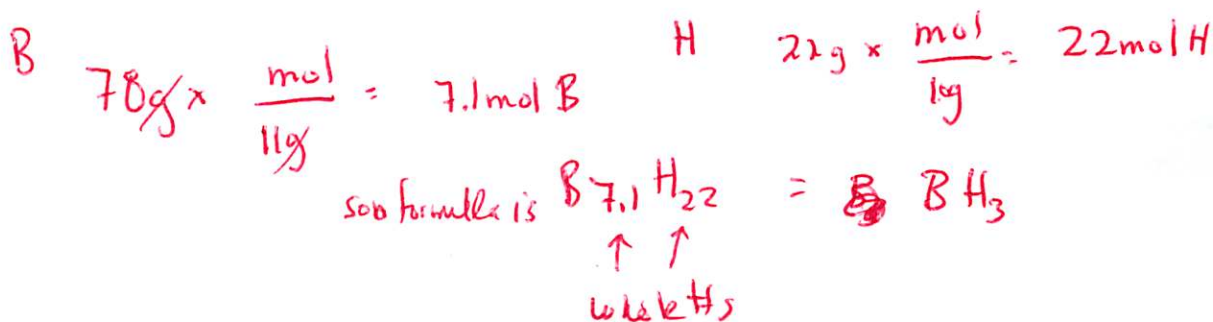 B 78g × mol/11g = 7.1mol B
H 22g × mol/1.0g = 22mol H
formula is B7.1 H22 = BH3
↑ ↑
whole #s